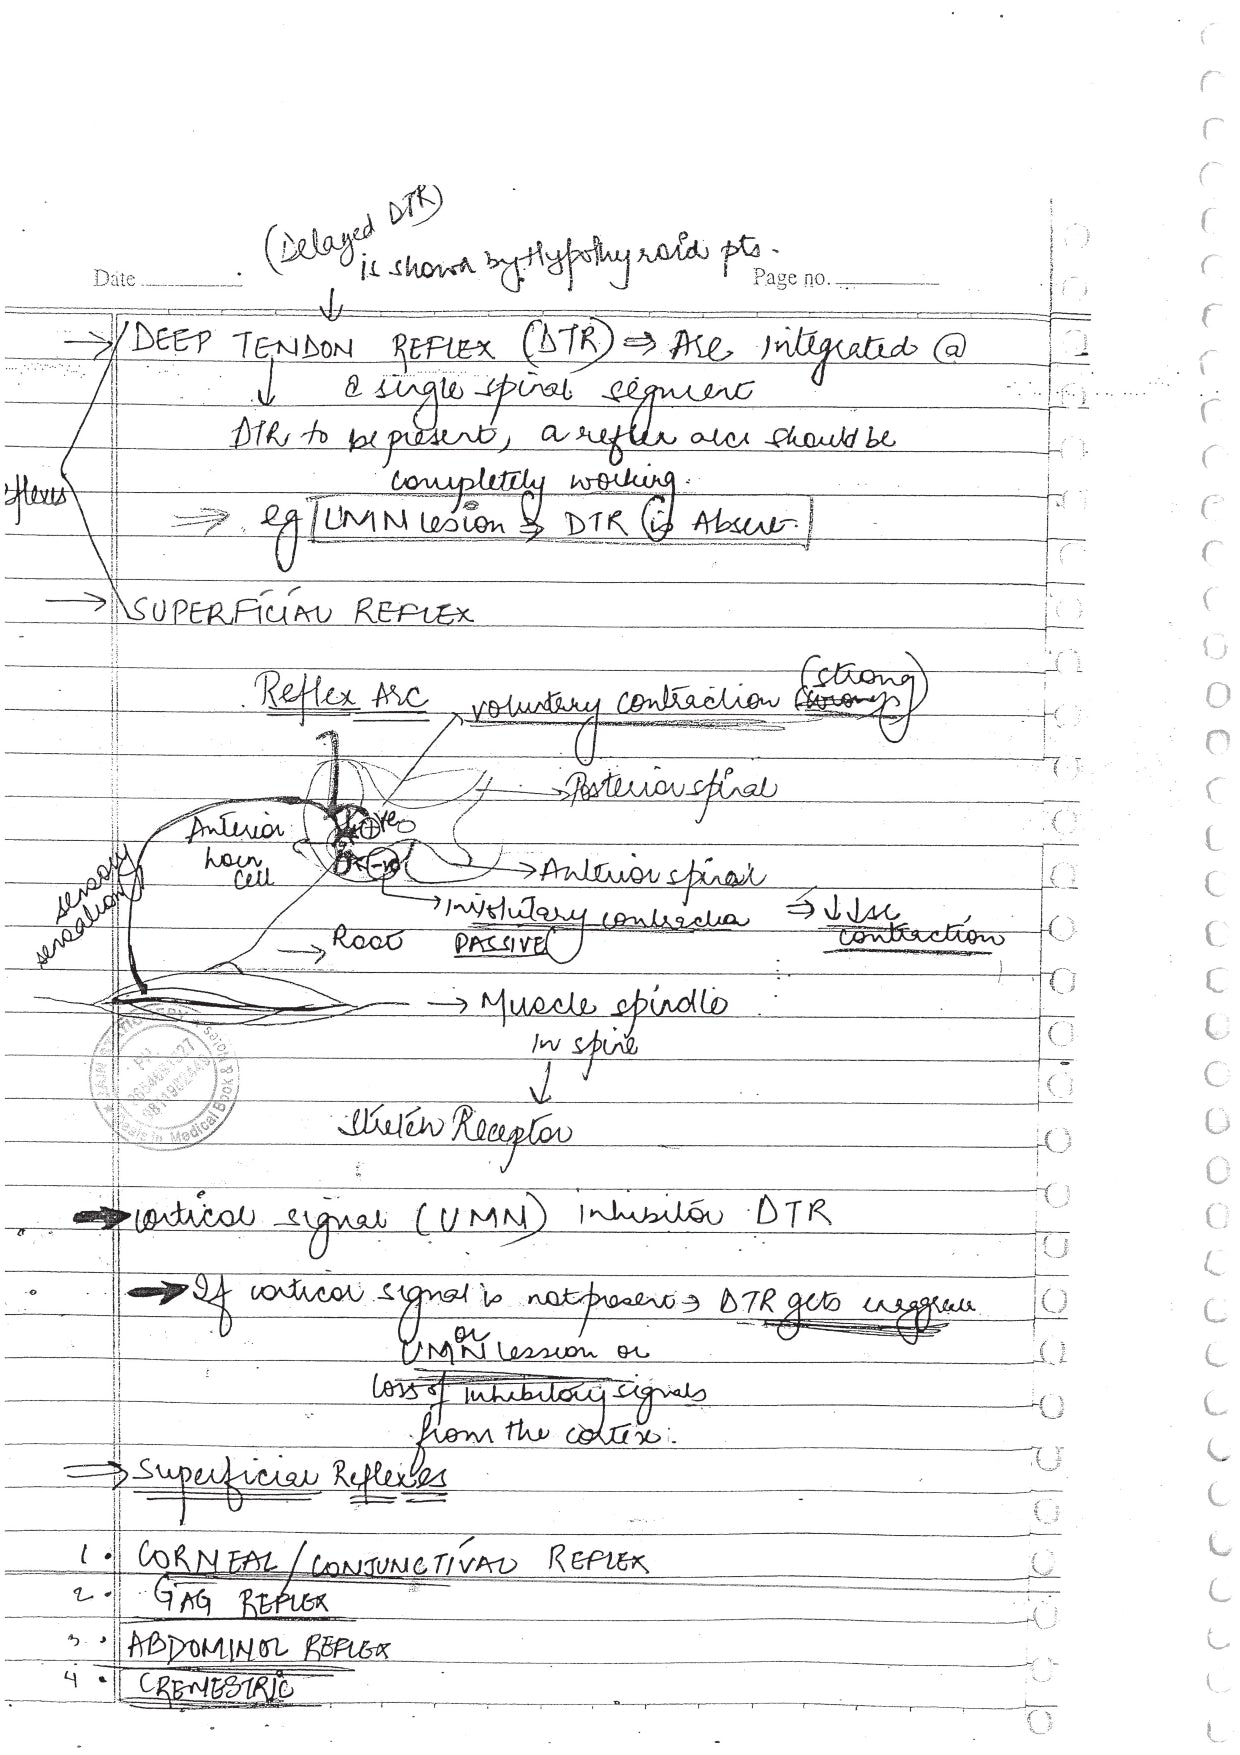 (Delayed DTR)
is shown by Hypothyroid pts.
Date
Page no.
DEEP TENDON REFLEX (DTR) ⇒ Are Integrated @
a single spinal segment
DTR to be present, a reflex arc should be
completely working.
⇒ eg UMN lesion → DTR is Absent.
→ SUPERFICIAL REFLEX
Reflex Arc
voluntary contraction (strong)
→ Posterior spinal
Anterior
horn
cell
+ve
-ve
→ Anterior spinal
sensory
sensation
→ Involutary contraction ⇒ ↓↓se
PASSIVE contraction
→ Root
→ Muscle spindle
in spine
↓
Stretch Receptor
JAIN STATIONERY
Deals in Medical Book & Notes
→ Cortical signal (UMN) inhibitor DTR
→ If cortical signal is not present → DTR gets
or
UMN lession or
loss of inhibitory signals
from the cortex.
⇒ Superficial Reflexes
1. CORNEAL / CONJUNCTIVAL REFLEX
2. GAG REFLEX
3. ABDOMINOL REFLEX
4. CREMESTRIC